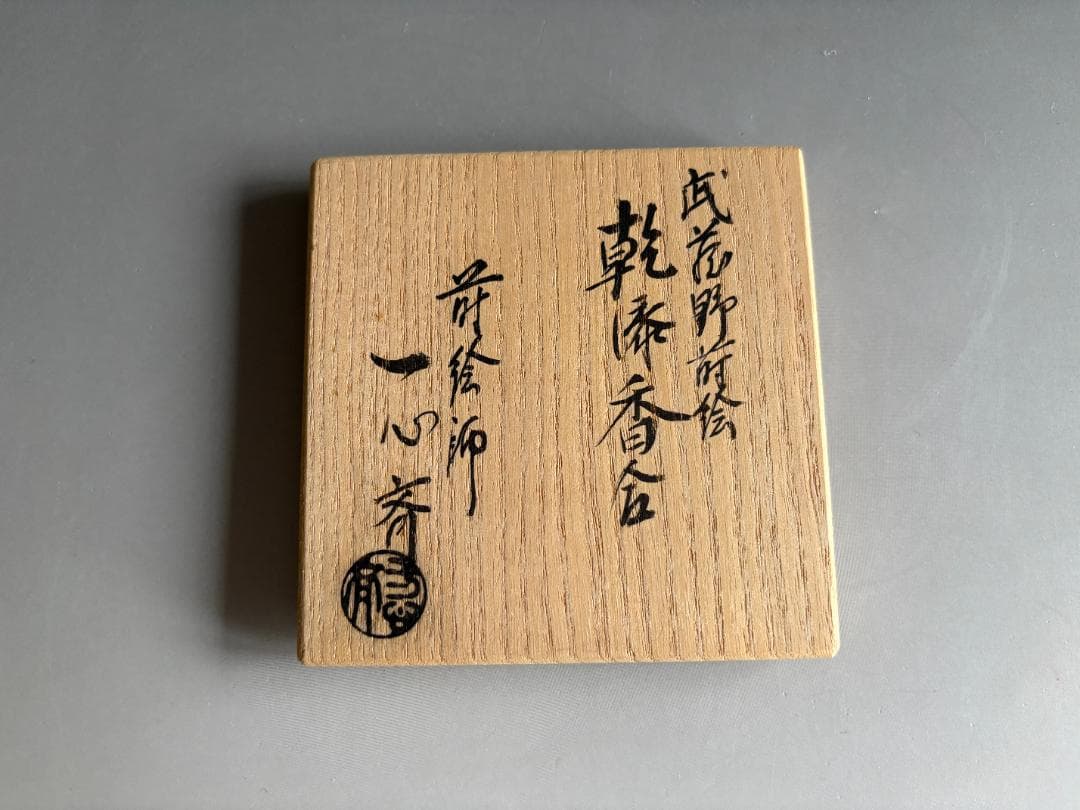 武蔵野蒔絵
乾漆香合
蒔絵師
一心斎